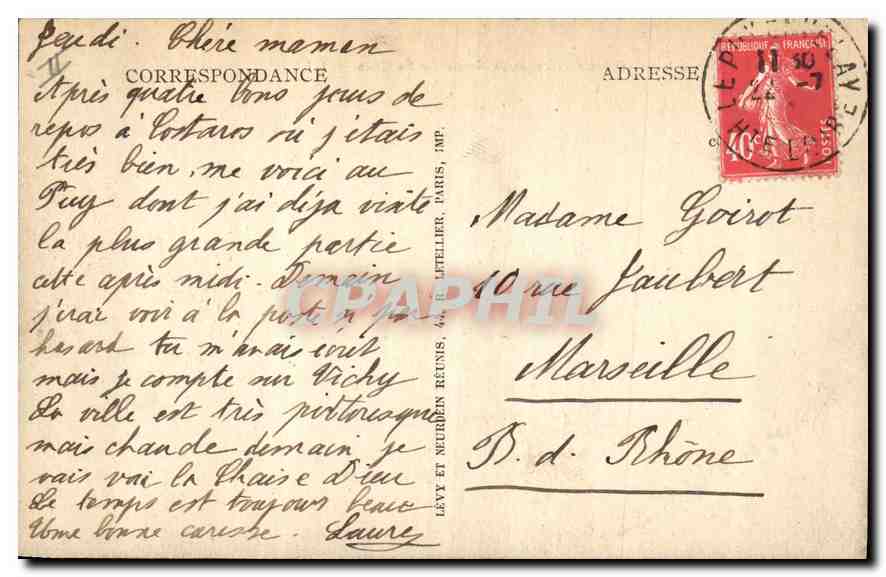 Jeudi. Chére maman
CORRESPONDANCE
Après quatre bons jours de
repos à Costaros où j'étais
très bien, me voici au
Puy dont j'ai déja visité
la plus grande partie
cette après midi. Demain
j'irai voir à la poste si par
hasard tu m'avais écrit
mais je compte sur Vichy
La ville est très pittoresque
mais chaude demain je
vais voir la Chaise Dieu
Le temps est toujours beau
Une bonne caresse. Laure
LÉVY ET NEURDEIN RÉUNIS, 44, R. LETELLIER, PARIS, IMP.
ADRESSE
RÉPUBLIQUE FRANÇAISE
40c
POSTES
LE PUY EN VELAY
11 30
-7
HTE LOIRE
Madame Goirot
10 rue Jaubert
Marseille
B. d. Rhône
CPAPHIL